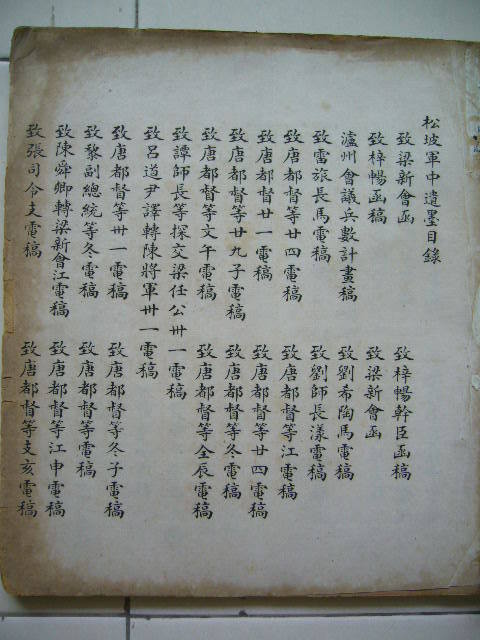 松坡軍中遺墨目錄
致梁新會函　致梓暢幹臣函稿
致梓暢函稿　致梁新會函
瀘州會議兵數計畫稿　致劉希陶馬電稿
致雷旅長馬電稿　致劉師長漾電稿
致唐都督等廿四電稿　致唐都督等江電稿
致唐都督廿一電稿　致唐都督等廿四電稿
致唐都督等廿九子電稿　致唐都督等冬電稿
致唐都督等文午電稿　致唐都督等全辰電稿
致譚師長等探交梁任公卅一電稿
致呂道尹譯轉陳將軍卅一電稿
致唐都督等卅一電稿　致唐都督等冬子電稿
致黎副總統等冬電稿　致唐都督等電稿
致陳舜卿轉梁新會江電稿　致唐都督等江申電稿
致張司令支電稿　致唐都督等支亥電稿